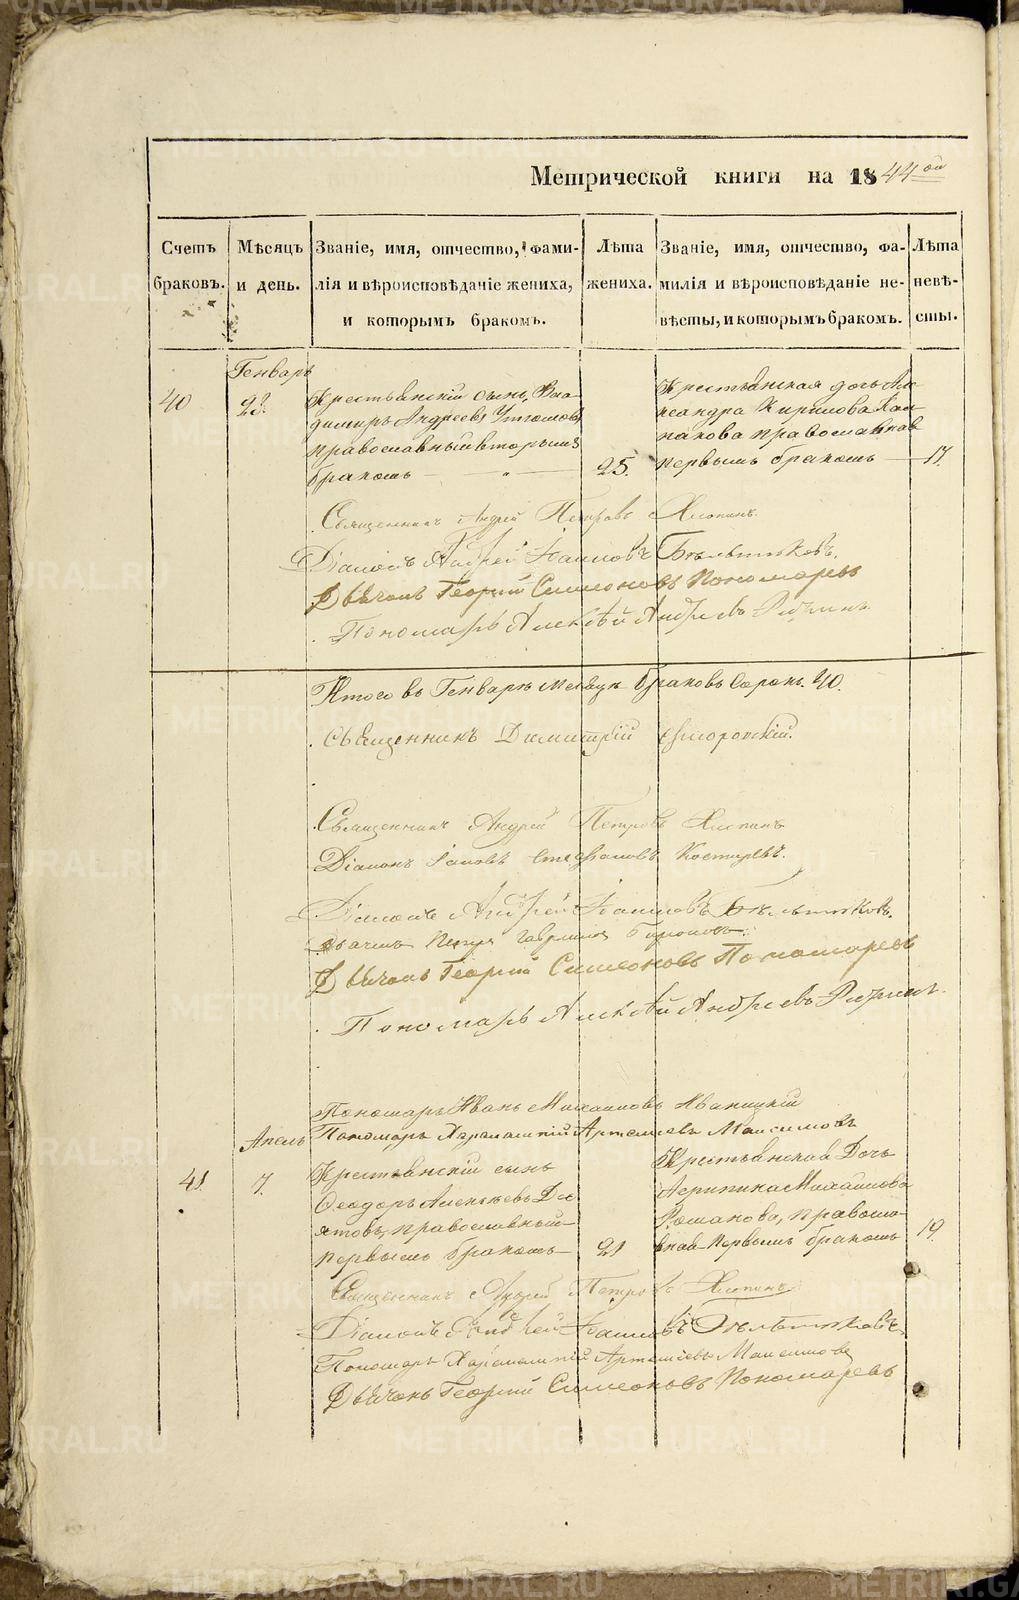 Метрической книги на 1844 ой
Счетъ браковъ.
Мѣсяцъ и день.
Званіе, имя, отчество, фами-
лія и вѣроисповѣданіе жениха,
и которымъ бракомъ.
Лѣта жениха.
Званіе, имя, отчество, фа-
милія и вѣроисповѣданіе не-
вѣсты, и которымъ бракомъ.
Лѣта невѣ-
сты.
Генварь
40
23.
Крестьянскій сынъ, Вла-
димиръ Андреевъ
православный вторымъ
бракомъ
25.
Крестьянская дочь Але-
ксандра Кирилова Кал-
пакова православная
первымъ бракомъ
17.
Священникъ Андрей Петровъ Хлопинъ.
Діаконъ Андрей Іоанновъ Бѣльтюковъ.
Дьячекъ Георгий Симеоновъ Пономаревъ
Пономарь Алексѣй Андреевъ
Итого въ Генварѣ месяцѣ браковъ Сорокъ. 40.
Священникъ Димитрій
Священникъ Андрей Петровъ Хлопинъ
Діаконъ Іаковъ Стефановъ Костаревъ.
Діаконъ Андрей Іоанновъ Бѣльтюковъ.
Дьячекъ Петръ Гавриловъ
Дьячекъ Георгий Симеоновъ Пономаревъ
Пономарь Алексѣй Андреевъ
Пономарь Иванъ Михаиловъ Иваницкій
Пономарь Харалампій Артемьевъ Максимовъ
Апрель
41.
7.
Крестьянскій сынъ
Феодоръ Алексѣевъ Дес-
ятовъ, православный
первымъ бракомъ
21
Крестьянская Дочь
Агрипина Михаилова
Романова, правосла-
вная первымъ бракомъ
19.
Священникъ Андрей Петровъ Хлопинъ.
Діаконъ Андрей Іоанновъ Бѣльтюковъ.
Пономарь Харалампий Артемиевъ Максимовъ
Дьячекъ Георгий Симеоновъ Пономаревъ
METRIKI.GASO-URAL.RU